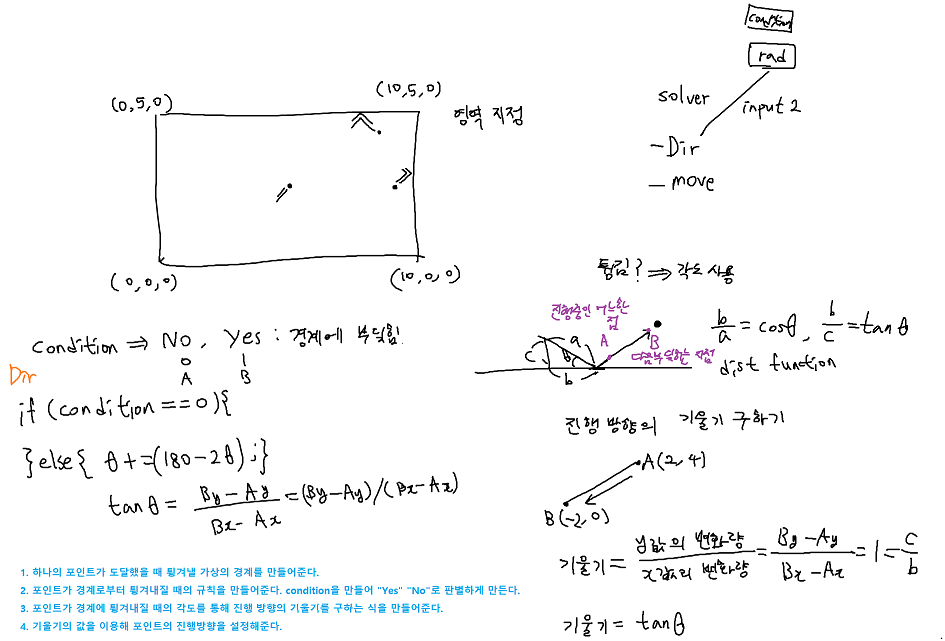 condition
rad
solver
input 2
- Dir
- move
(0,5,0)
(10,5,0)
영역 지정
(0,0,0)
(10,0,0)
condition ⇒ No, Yes : 경계에 부딪힘!
0 1
A B
Dir
if (condition == 0){
}else{ θ += (180-2θ);}
tanθ = By-Ay / Bx-Ax = (By-Ay)/(Bx-Ax)
튕김? ⇒ 각도 사용
진행중인 어느한 점
A
B
다음부딪히는 지점
a
c
θ
b
b/a = cosθ, b/c = tanθ
dist function
진행 방향의 기울기 구하기
A(2,4)
B(-2,0)
기울기 = y값의 변화량 / x값의 변화량 = By-Ay / Bx-Ax = 1 = c/b
기울기 = tanθ
1. 하나의 포인트가 도달했을 때 튕겨낼 가상의 경계를 만들어준다.
2. 포인트가 경계로부터 튕겨내질 때의 규칙을 만들어준다. condition을 만들어 "Yes" "No"로 판별하게 만든다.
3. 포인트가 경계에 튕겨내질 때의 각도를 통해 진행 방향의 기울기를 구하는 식을 만들어준다.
4. 기울기의 값을 이용해 포인트의 진행방향을 설정해준다.